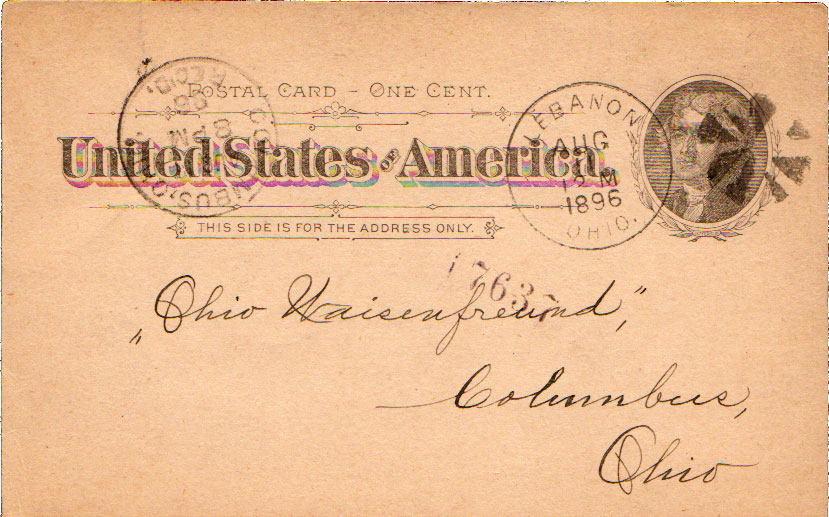 POSTAL CARD – ONE CENT.
United States OF America.
THIS SIDE IS FOR THE ADDRESS ONLY.
LEBANON
AUG
12 M
1896
OHIO.
REC'D.
96
8 PM
1763
„Ohio Waisenfreund,"
Columbus,
Ohio